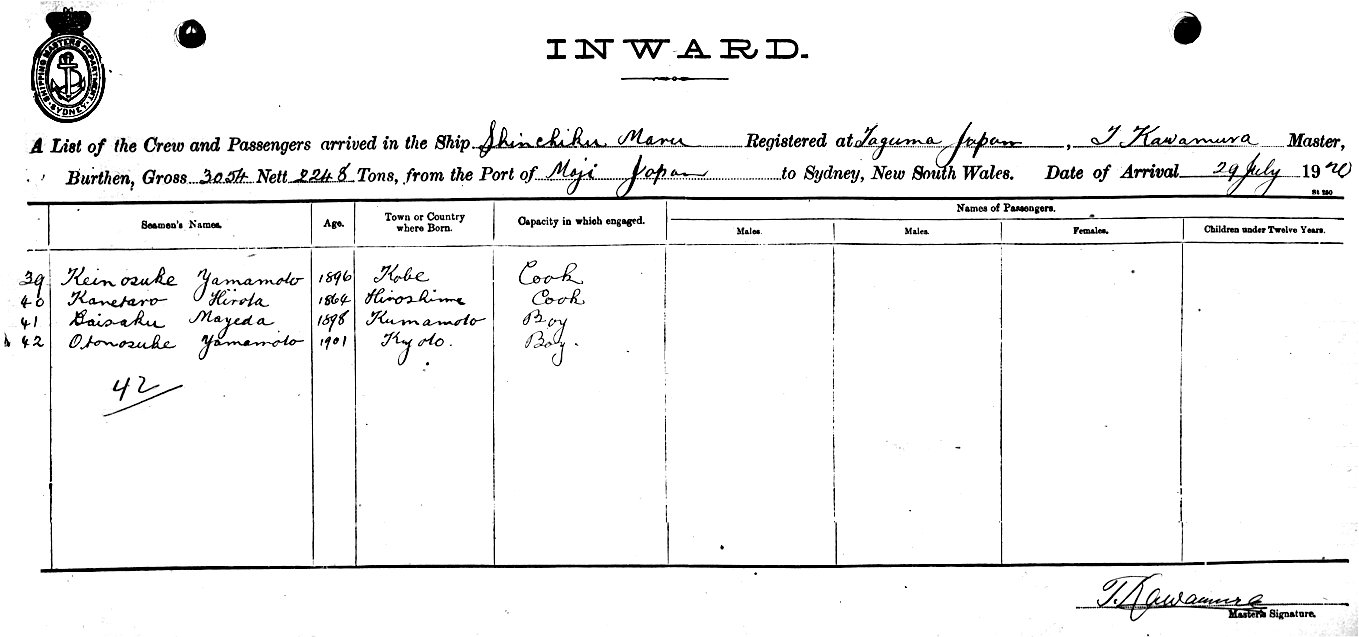 SHIPPING MASTERS DEPARTMENT SYDNEY
INWARD.
A List of the Crew and Passengers arrived in the Ship Shinchiku Maru Registered at Taguma Japan, T Kawamura Master,
Burthen, Gross 3054 Nett 2248 Tons, from the Port of Moji Japan to Sydney, New South Wales. Date of Arrival 29 July 1920
Seamen's Names. Age. Town or Country where Born. Capacity in which engaged. Names of Passengers.
Males. Males. Females. Children under Twelve Years.
39 Keinosuke Yamamoto 1896 Kobe Cook
40 Kanetaro Hirota 1864 Hiroshima Cook
41 Daisaku Mayeda 1898 Kumamoto Boy
42 Otonosuke Yamamoto 1901 Kyoto. Boy.
42
T. Kawamura
Master's Signature.